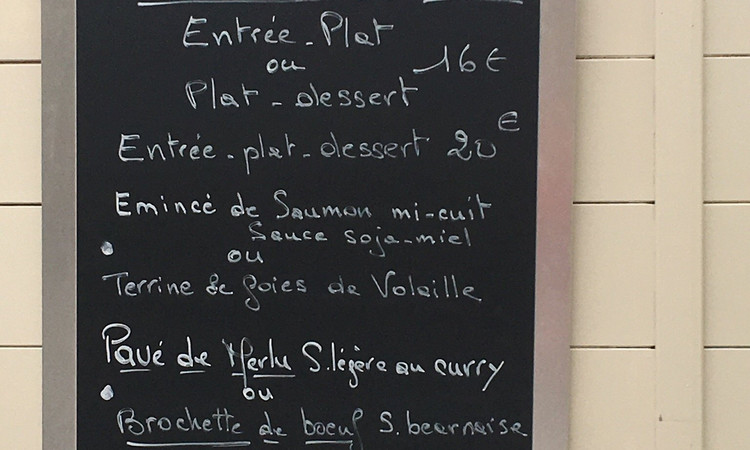 Entrée - Plat
ou 16€
Plat - dessert
Entrée - plat - dessert 20€
Emincé de Saumon mi-cuit
Sauce soja-miel
ou
Terrine de foies de Volaille
Pavé de Merlu S. légère au curry
ou
Brochette de boeuf S. bearnaise